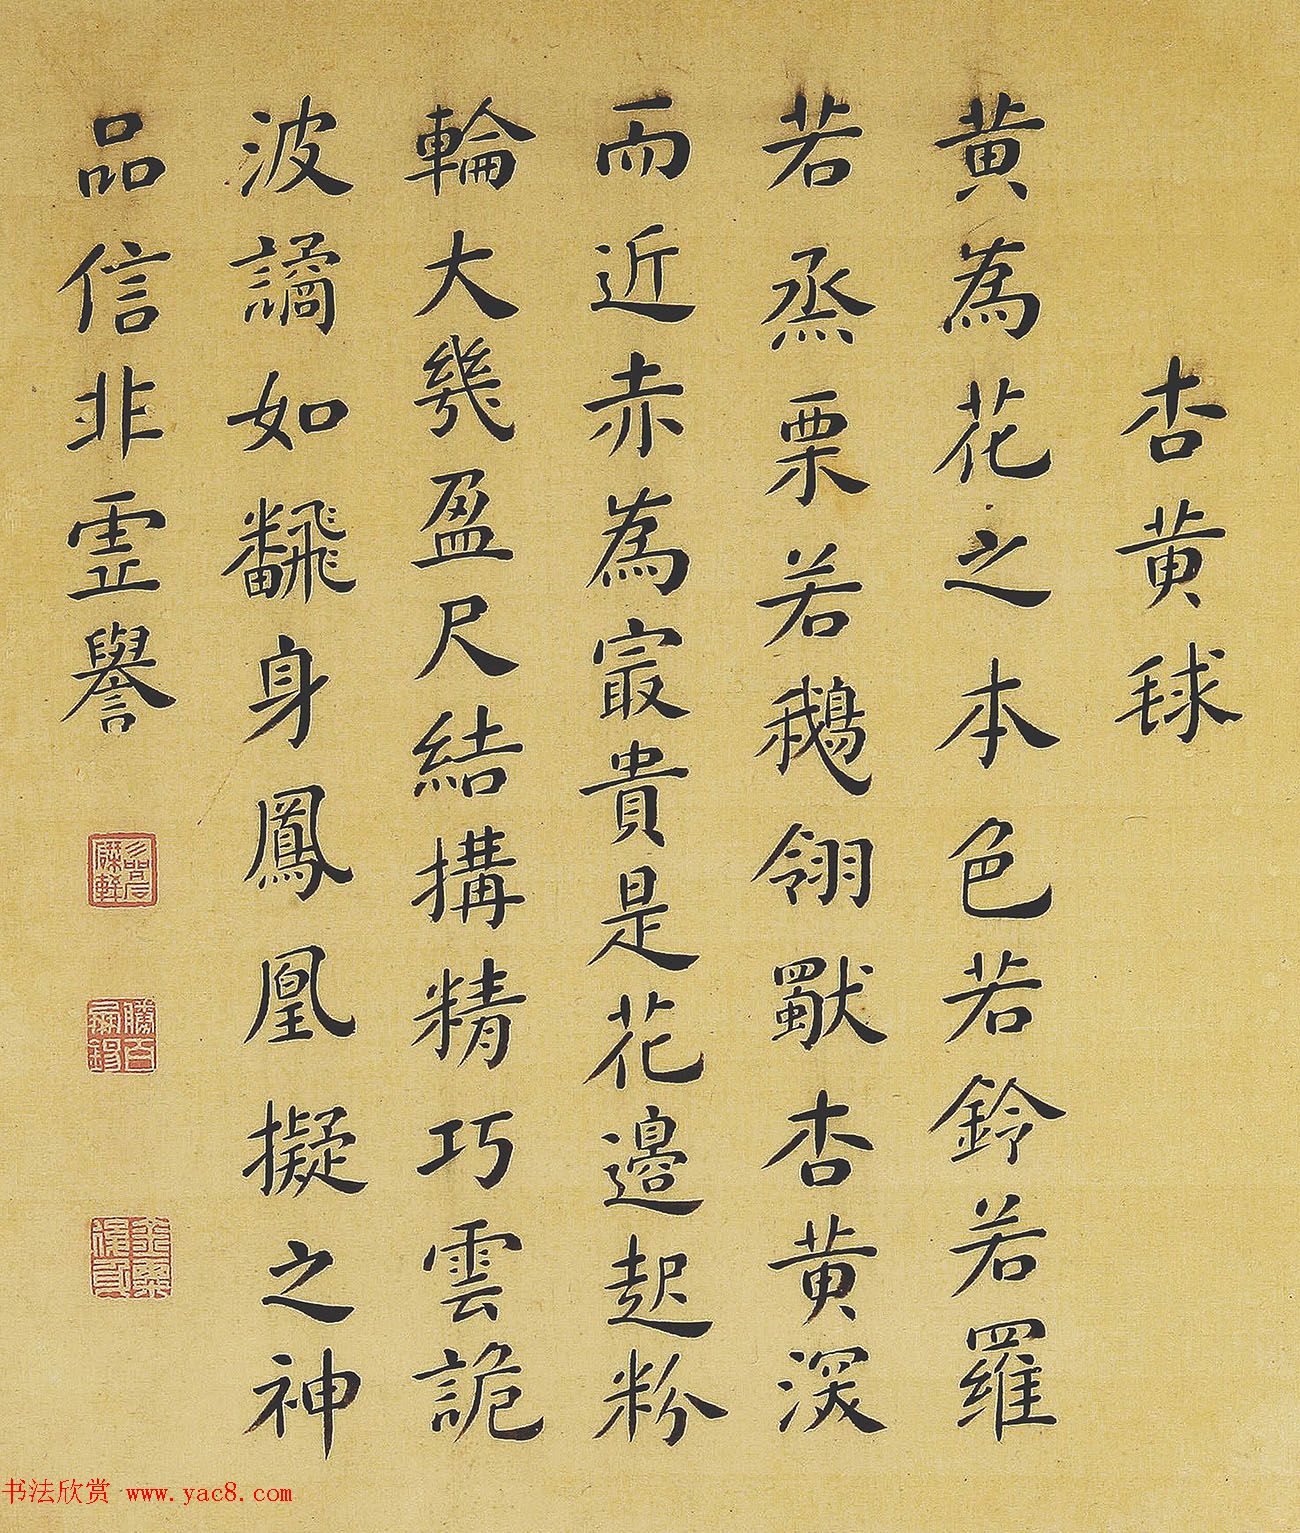 杏黄毬
黄為花之本色若鈴若羅
若烝栗若鵝翎獨杏黄深
而近赤為㝡貴是花邊起粉
輪大幾盈尺結搆精巧雲詭
波譎如飜身鳳凰擬之神
品信非虛譽
书法欣赏 www.yac8.com